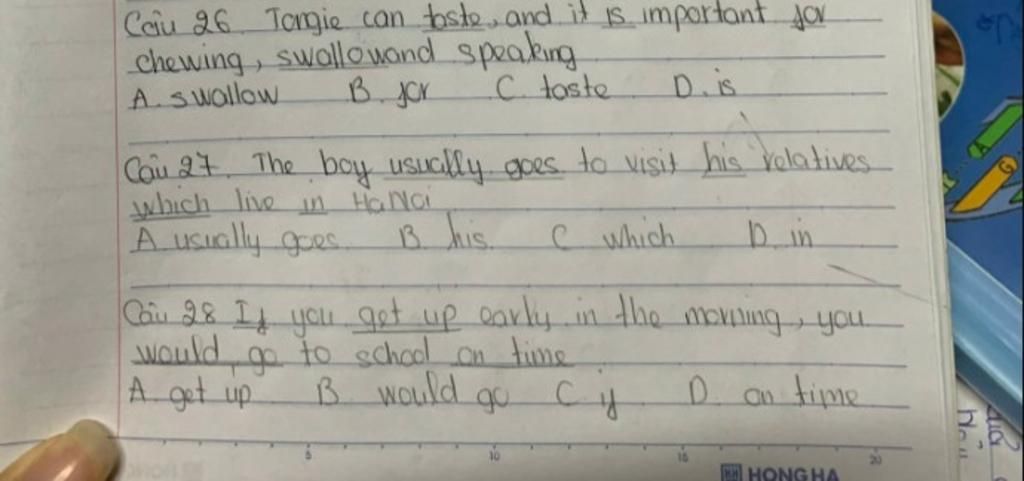 Câu 26. Tongie can taste, and it is important for
chewing, swallowand speaking
A. swallow B. for C. taste D. is
Câu 27. The boy usually goes to visit his relatives
which live in HaNoi
A usually goes B. his. C which D. in
Câu 28 If you get up early in the morning, you
would go to school on time
A. get up B. would go C if D. on time
5 10 15 20
HONG HA